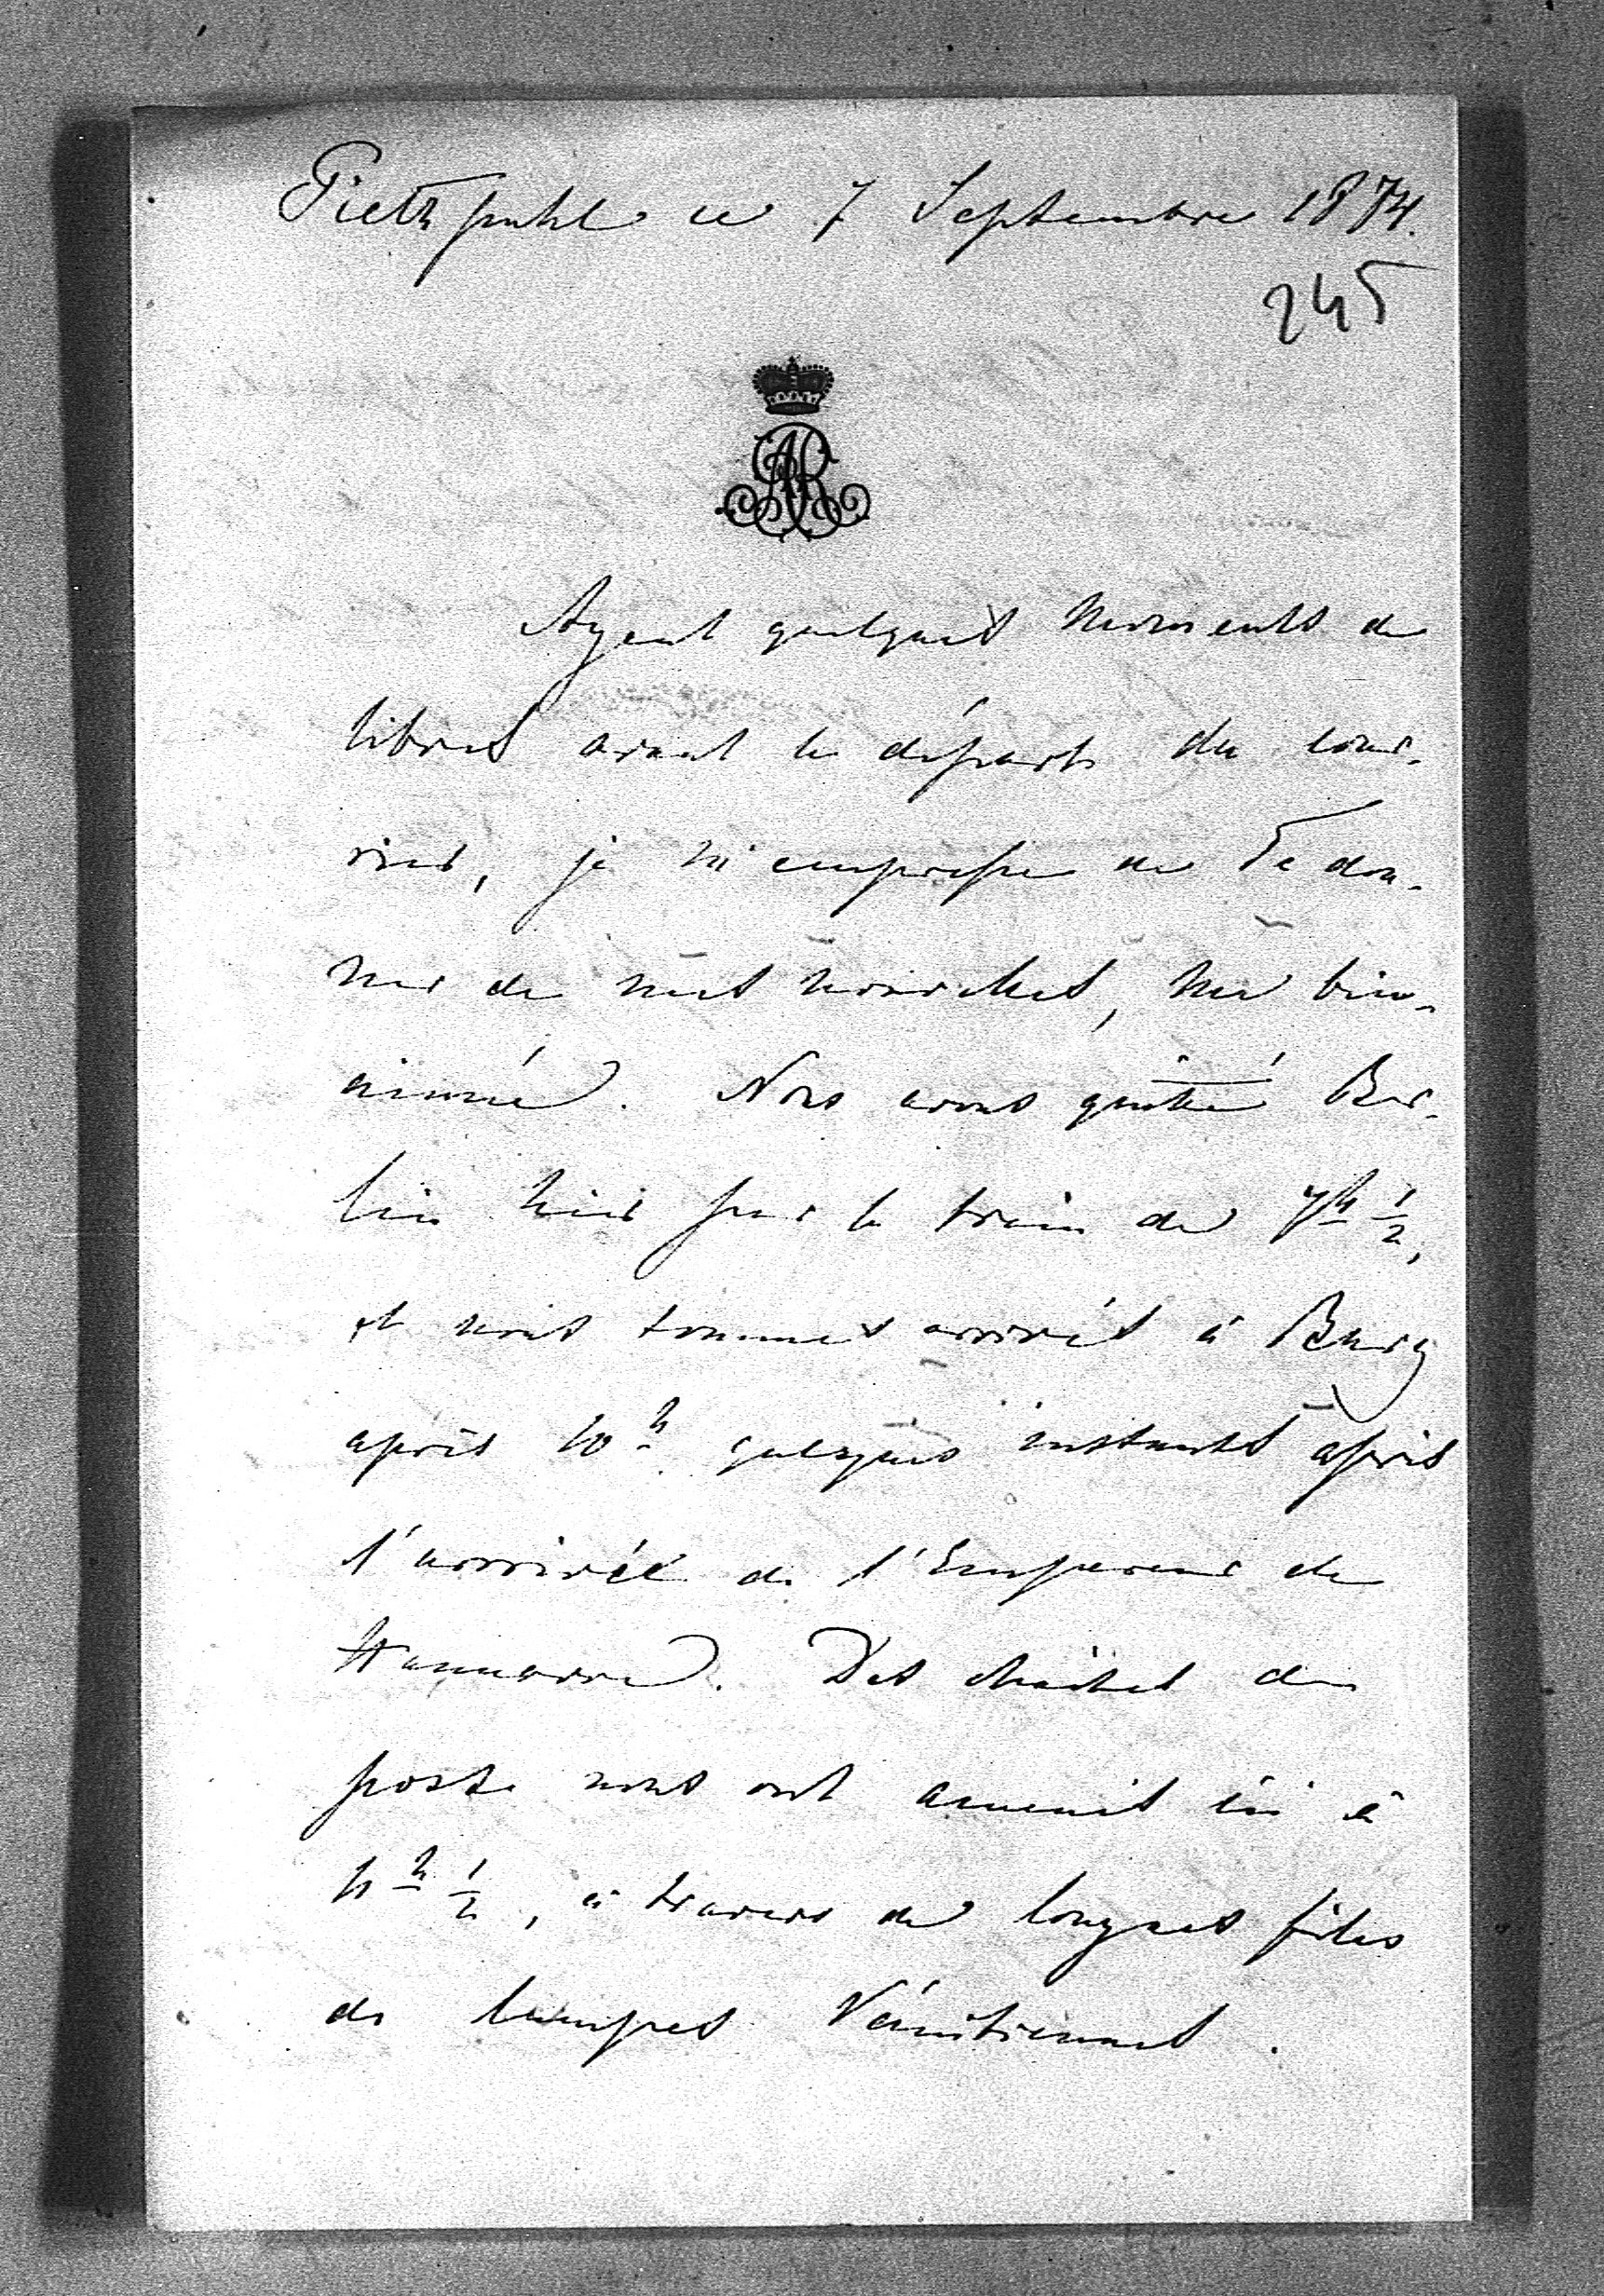 Pietzpuhl ce 7 Septembre 1874.
245
AR
Ayant quelques moments de
libres avant le départ du cour-
rier, je m'empresse de Te don-
ner de mes nouvelles, ma bien-
aimée. Nous avons quitté Ber-
lin hier par le train de 7h 1/2,
et nous sommes arrivés à Burg
après 10h quelques instants après
l'arrivée de l'Empereur de
Hannovre. Des chaises de
poste nous ont amenés ici à
11h 1/2, à travers de longues files
de lampes Vénitiennes.